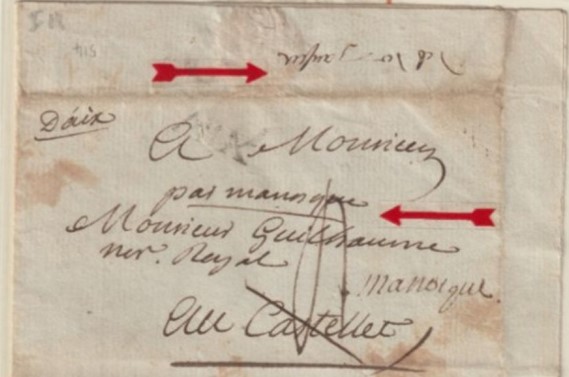 D'aix
A Monsieur
par manosque
Monsieur Guilhaume
not. Royal
manosque.
Au Castellet